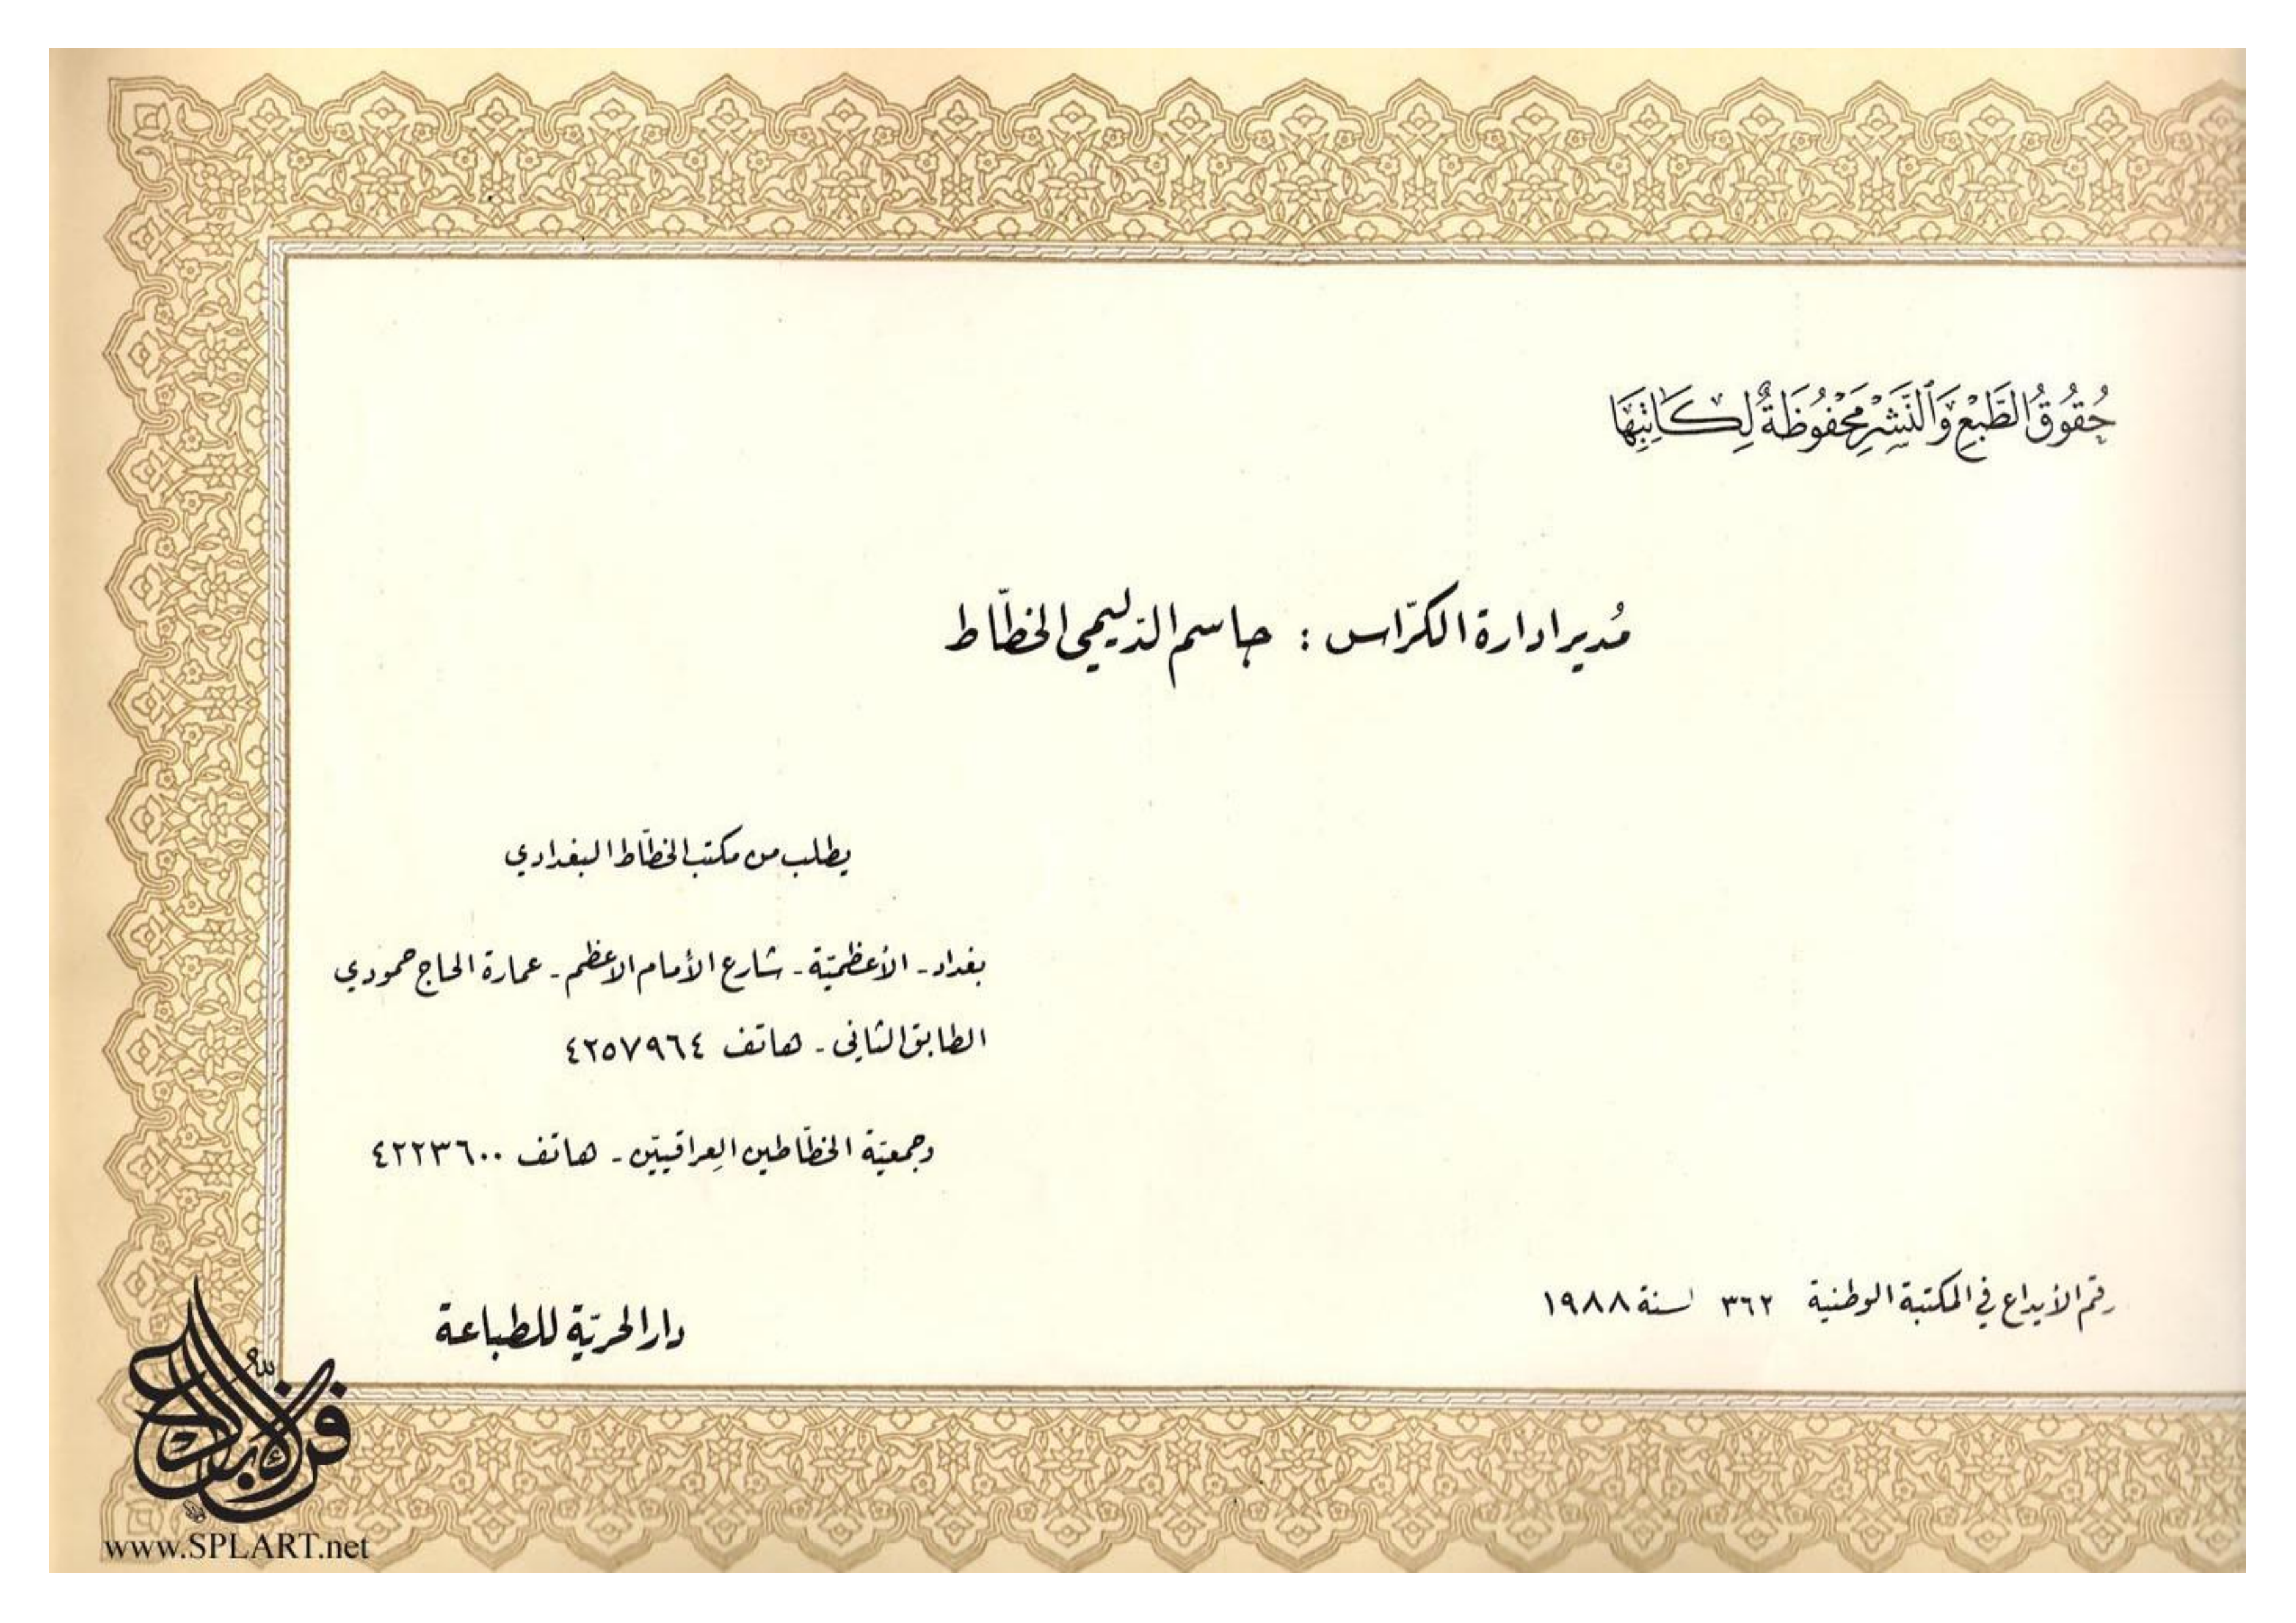 حُقُوقُ الطَّبْعِ وَالنَّشْرِ مَحْفُوظَةٌ لِكَاتِبِهَا
مُدير ادارة الكرّاس : جاسم الدّليمي الخطّاط
يطلب من مكتب الخطّاط البغدادي
بغداد - الأعظميّة - شارع الأمام الاعظم - عمارة الحاج حمودي
الطابق الثاني - هاتف ٤٢٥٧٩٦٤
وجمعيّة الخطّاطين العراقيّين - هاتف ٤٢٢٣٦٠٠
رقم الأيداع في المكتبة الوطنية ٣٦٢ لسنة ١٩٨٨
دار الحريّة للطباعة
www.SPLART.net